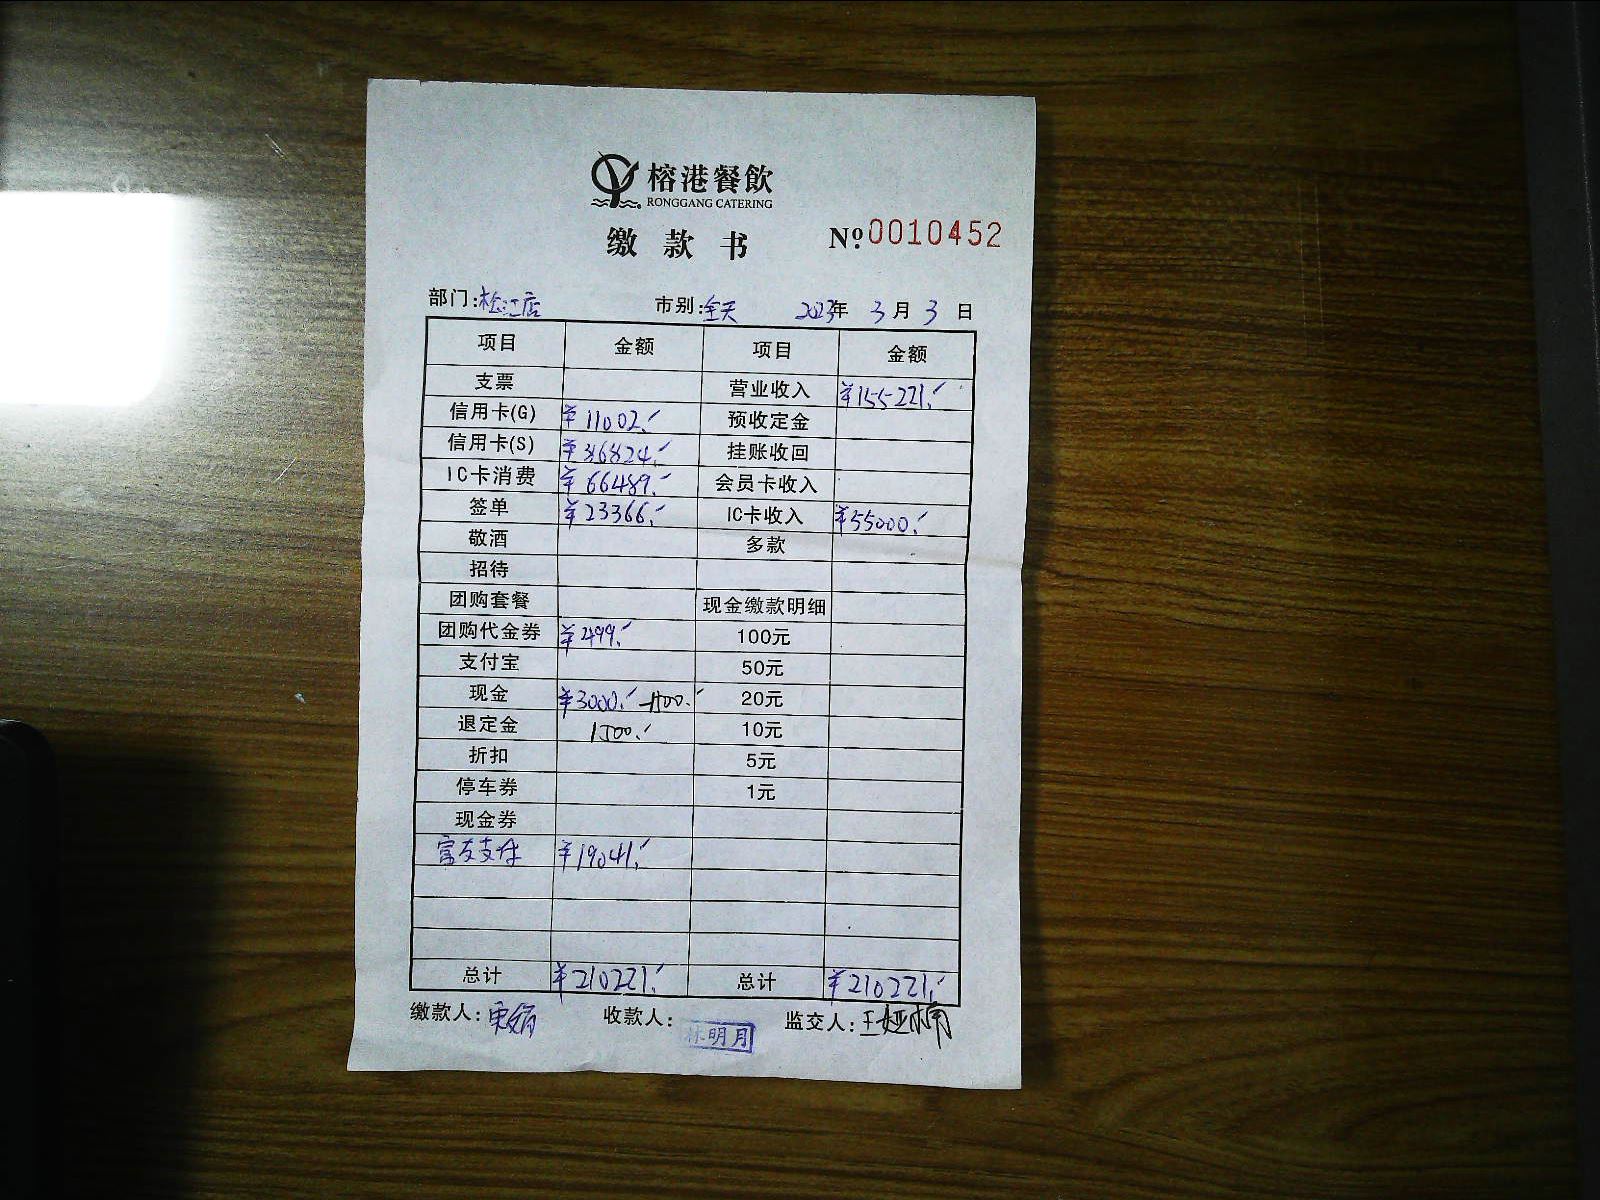 榕港餐飲
RONGGANG CATERING
缴款书 Nº 0010452
部门:松江店 市别:全天 2023年 3月 3日
项目 金额 项目 金额
支票 营业收入 ¥155221.-
信用卡(G) ¥11002.- 预收定金
信用卡(S) ¥86824.- 挂账收回
IC卡消费 ¥66489.- 会员卡收入
签单 ¥23366.- IC卡收入 ¥55000.-
敬酒 多款
招待
团购套餐 现金缴款明细
团购代金券 ¥499.- 100元
支付宝 50元
现金 ¥3000.- -1500.- 20元
退定金 1500.- 10元
折扣 5元
停车券 1元
现金券
富友支付 ¥19041.-
总计 ¥210221.- 总计 ¥210221.-
缴款人: 收款人: 林明月 监交人:王娅楠